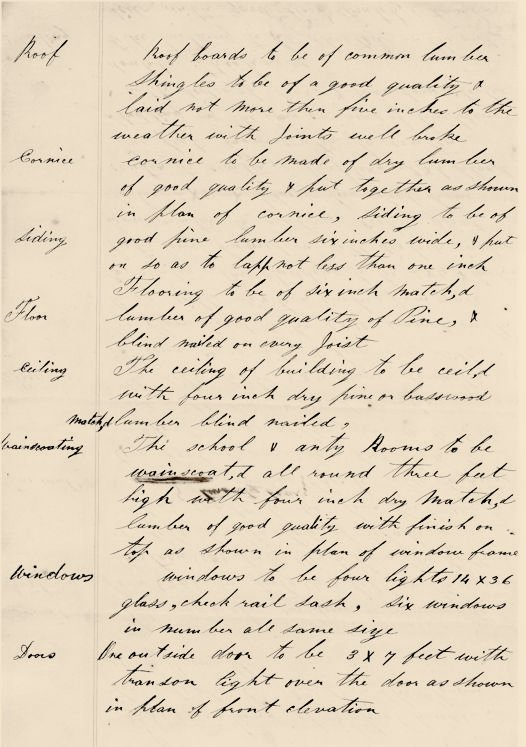 Roof Roof boards to be of common lumber
Shingles to be of a good quality &
laid not more then five inches to the
weather with Joints well broke
Cornice cornice to be made of dry lumber
of good quality & put together as shown
in plan of cornice, siding to be of
siding good pine lumber six inches wide, & put
on so as to lapp not less than one inch
Flooring to be of six inch match,d
Floor lumber of good quality of Pine, &
blind nailed on every Joist
ceiling The ceiling of building to be ceil,d
with four inch dry pine or basswood
match,d lumber blind nailed,
Wainscoating The school & anty Rooms to be
wainscoat,d all round three feet
high with four inch dry match,d
lumber of good quality with finish on
top as shown in plan of window frame
Windows windows to be four lights 14 X 36
glass, check rail sash, six windows
in number all same size
Doors One outside door to be 3 X 7 feet with
transon light over the door as shown
in plan of front elevation